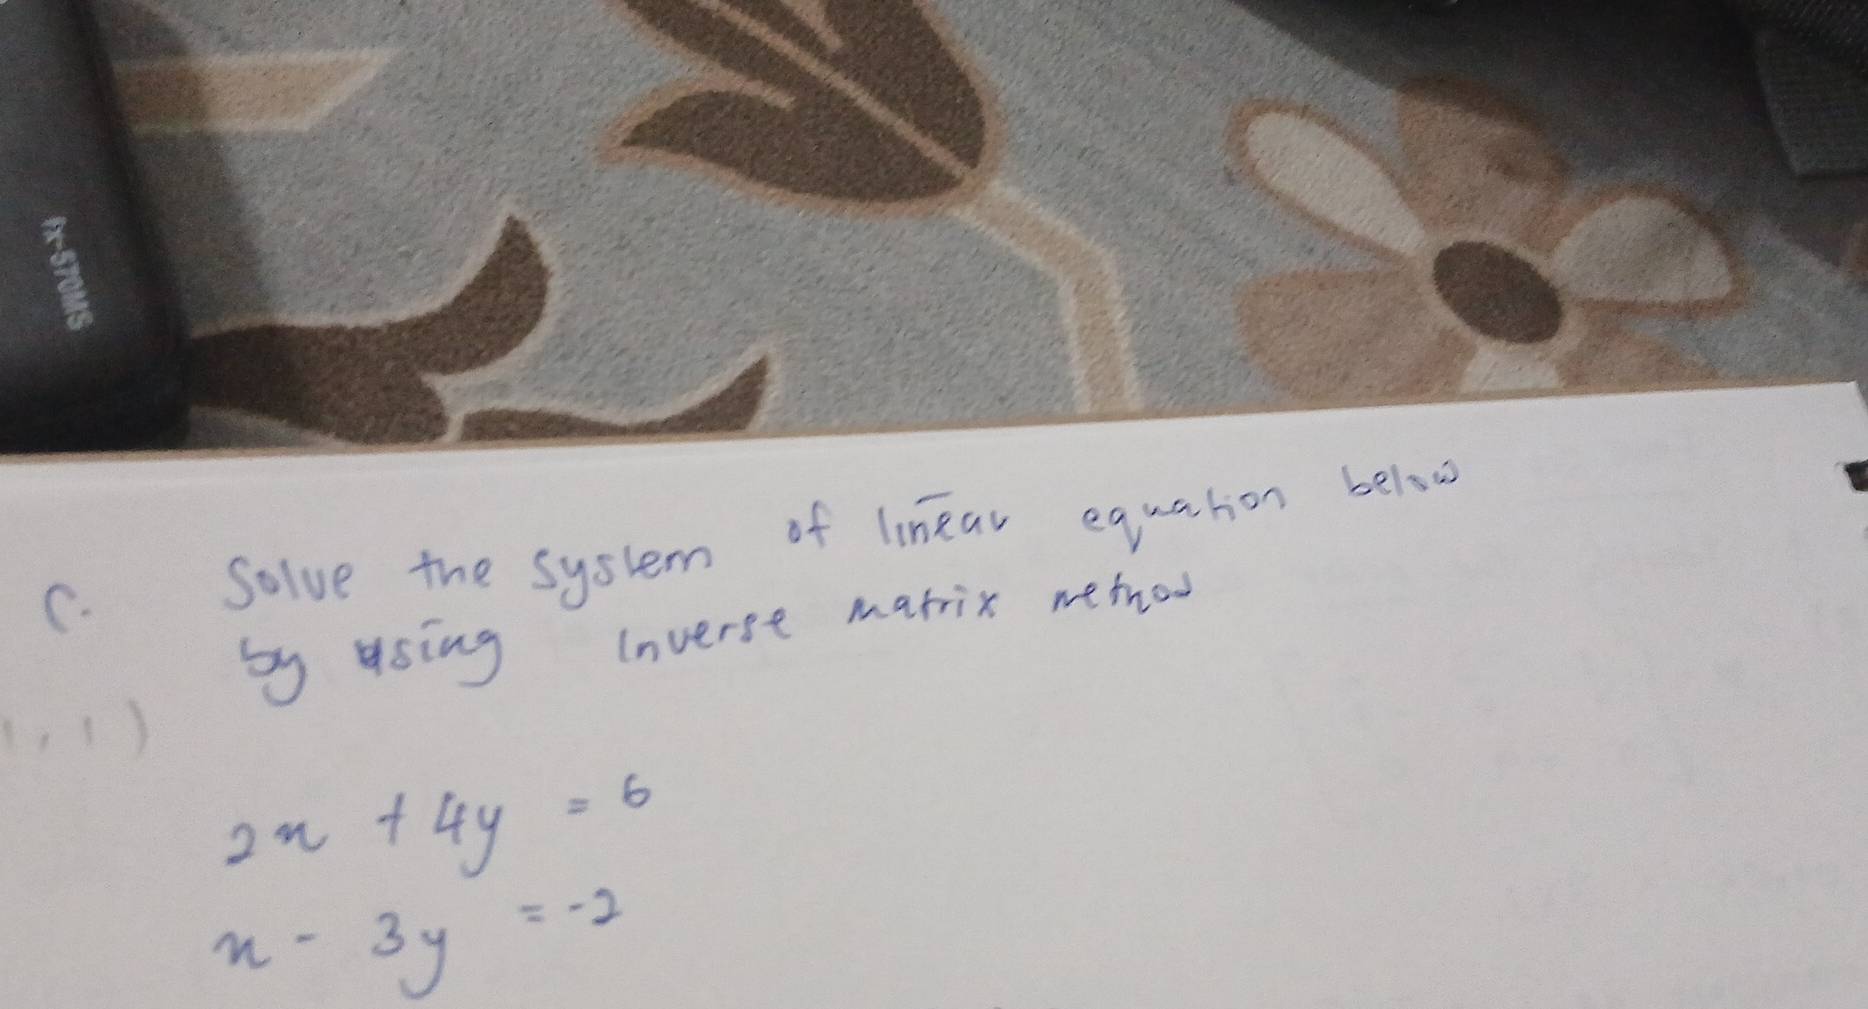 fx-570MS
C. Solve the system of linear equation below
by using inverse matrix method
1, 1)
2x + 4y = 6
x - 3y = -2